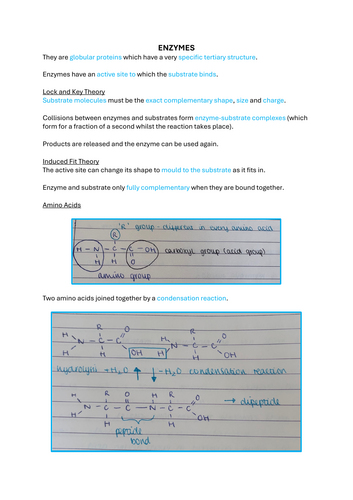 ENZYMES
They are globular proteins which have a very specific tertiary structure.
Enzymes have an active site to which the substrate binds.
Lock and Key Theory
Substrate molecules must be the exact complementary shape, size and charge.
Collisions between enzymes and substrates form enzyme-substrate complexes (which
form for a fraction of a second whilst the reaction takes place).
Products are released and the enzyme can be used again.
Induced Fit Theory
The active site can change its shape to mould to the substrate as it fits in.
Enzyme and substrate only fully complementary when they are bound together.
Amino Acids
'R' group - differs in every amino acid
R
H - N - C - C - OH carboxyl group (acid group)
H H O
amino group
Two amino acids joined together by a condensation reaction.
H R O H R O
N - C - C N - C - C
H H OH H H OH
hydrolysis + H2O - H2O condensation reaction
H R O H R O
N - C - C - N - C - C → dipeptide
H H H OH
peptide
bond